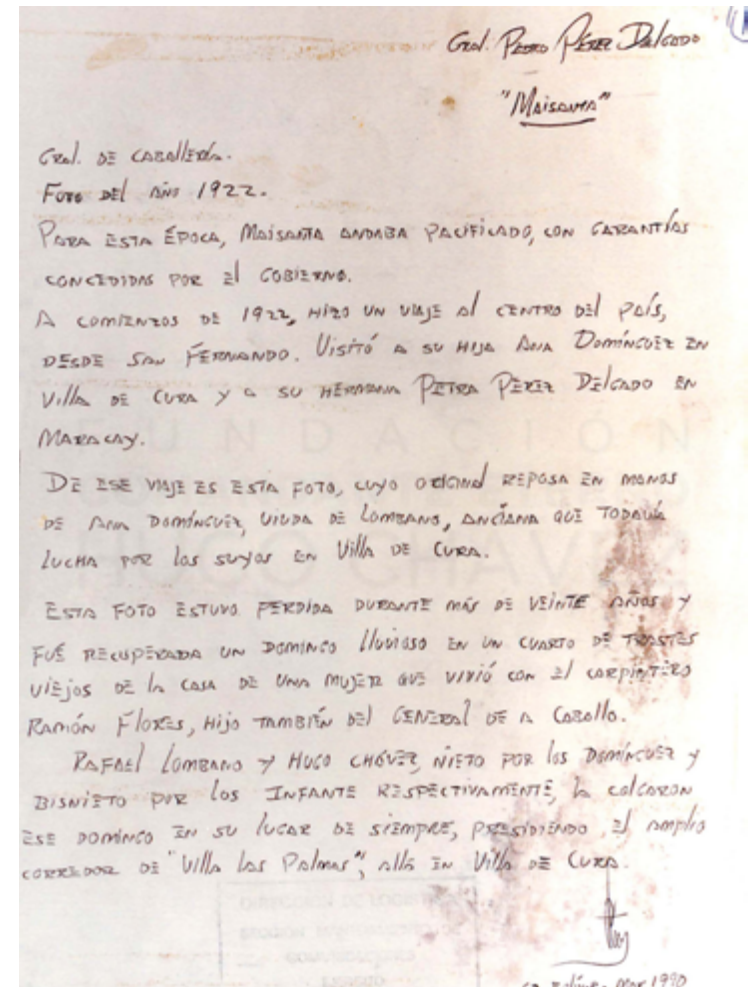 Gral. Pedro Pérez Delgado
"Maisanta"
Gral. de caballería.
Foto del año 1922.
Para esta época, Maisanta andaba pacificado, con garantías
concedidas por el gobierno.
A comienzos de 1922, hizo un viaje al centro del país,
desde San Fernando. Visitó a su hija Ana Domínguez en
Villa de Cura y a su hermana Petra Pérez Delgado en
Maracay.
De ese viaje es esta foto, cuyo original reposa en manos
de Ana Domínguez, viuda de Lombano, anciana que todavía
lucha por los suyos en Villa de Cura.
Esta foto estuvo perdida durante más de veinte años y
fué recuperada un domingo lluvioso en un cuarto de trastes
viejos de la casa de una mujer que vivió con el carpintero
Ramón Flores, hijo también del General de a Caballo.
Rafael Lombano y Hugo Chávez, nieto por los Domínguez y
bisnieto por los Infante respectivamente, la colcaron
ese domingo en su lugar de siempre, presidiendo el amplio
corredor de "Villa Las Palmas", allá en Villa de Cura.
Mar 1990
FUNDACIÓN
HUGO CHÁVEZ